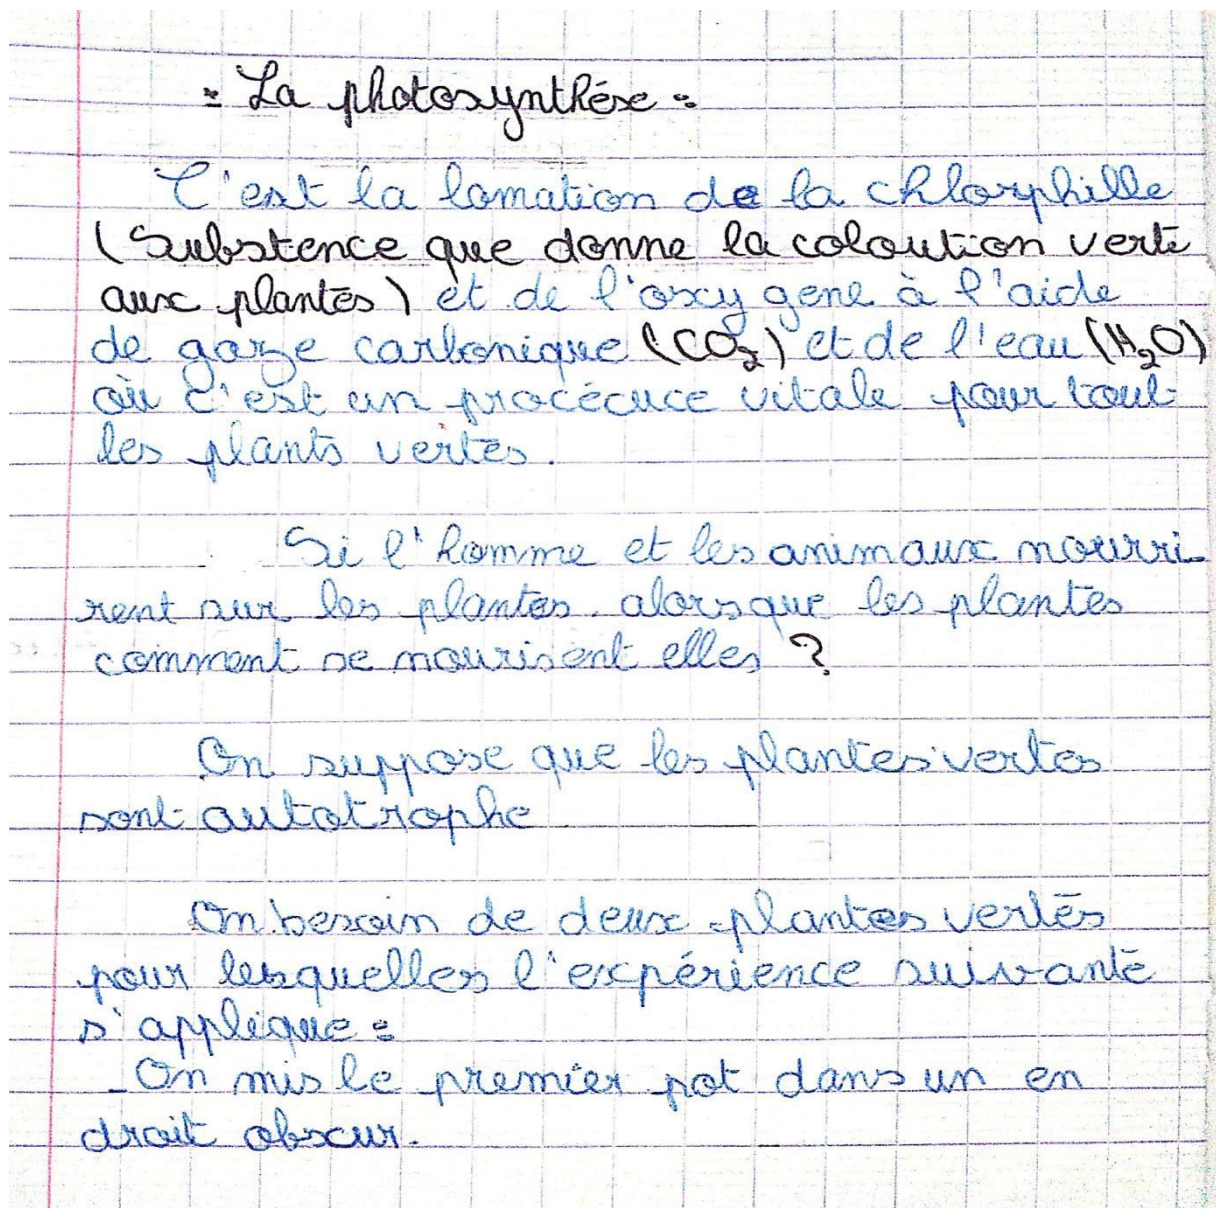 = La photosynthése =
C'est la lomation de la chlorphille
(Substence que donne la coloution verte
aux plantes) et de l'oxygene à l'aide
de gaze carbonique (CO2) et de l'eau (H2O)
où c'est un procécuce vitale pour tout
les plants vertes.
Si l'homme et les animaux nourri-
rent sur les plantes. alorsque les plantes
comment se nourisent elles ?
On suppose que les plantes vertes
sont autotrophe
On besoin de deux plantes vertes
pour lesquelles l'expérience suivante
s'applique :
- On mis le premier pot dans un en
droit obscur.